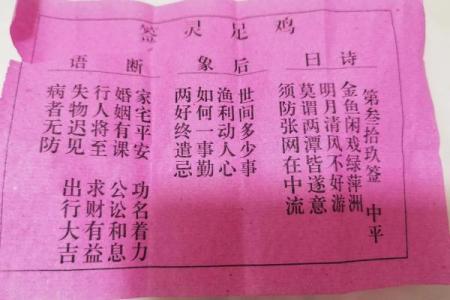 鸡足灵签
诗曰
第叁拾玖签 中平
金鱼闲戏绿萍洲
明月清风不好游
莫谓两潭皆遂意
须防张网在中流
后象
世间多少事
渔利动人心
如何一事勤
两好终遗忌
断语
家宅平安 功名着力
婚姻有课 公讼和息
行人将至 求财有益
失物迟见 出行大吉
病者无防